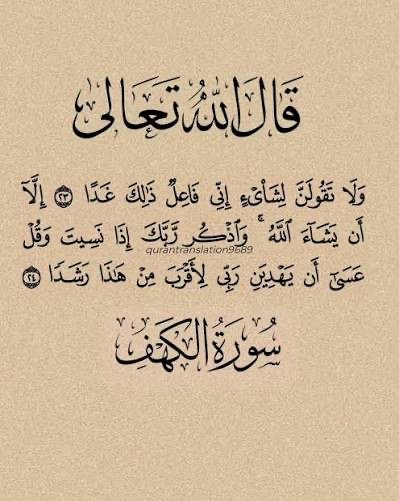 قَالَ اللهُ تَعَالَى
وَلَا تَقُولَنَّ لِشَا۟ىْءٍ إِنِّى فَاعِلٌ ذَٰلِكَ غَدًا ٢٣ إِلَّآ
أَن يَشَآءَ ٱللَّهُ ۚ وَٱذْكُر رَّبَّكَ إِذَا نَسِيتَ وَقُلْ
qurantranslation9689
عَسَىٰٓ أَن يَهْدِيَنِ رَبِّى لِأَقْرَبَ مِنْ هَٰذَا رَشَدًا ٢٤
سُورَةُ الكَهَفِ